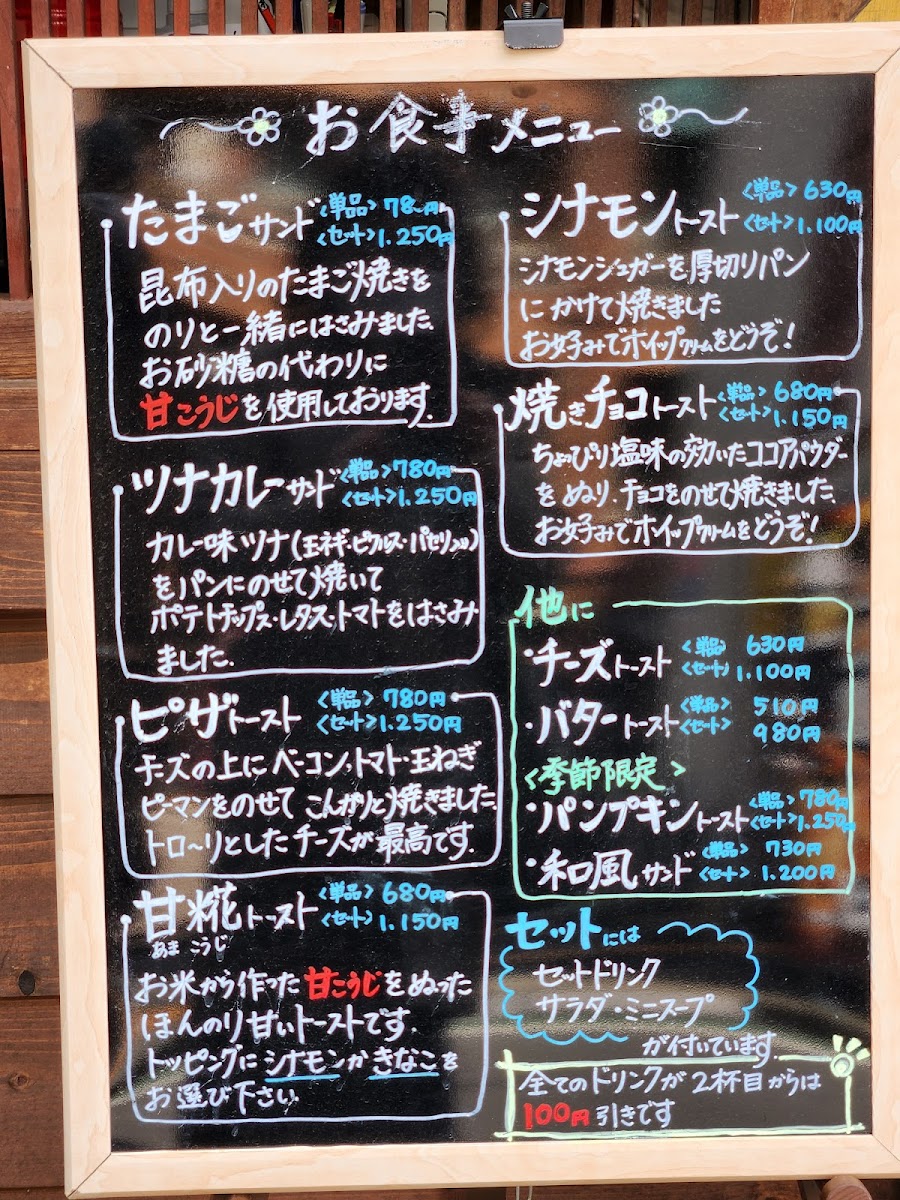 お食事メニュー
たまごサンド <単品> 78 円
<セット> 1.250円
昆布入りのたまご焼きを
のりと一緒にはさみました。
お砂糖の代わりに
甘こうじを使用しております。
ツナカレーサンド <単品> 780円
<セット> 1.250円
カレー味ツナ(玉ネギ・ピクルス・パセリ入り)
をパンにのせて焼いて
ポテトチップス・レタス・トマトをはさみ
ました。
ピザトースト <単品> 780円
<セット> 1.250円
チーズの上にベーコン、トマト・玉ねぎ
ピーマンをのせて こんがりと焼きました。
トロ〜リとしたチーズが最高です。
甘糀トースト <単品> 680円
あまこうじ <セット> 1.150円
お米から作った甘こうじをぬった
ほんのり甘いトーストです。
トッピングにシナモンかきなこを
お選び下さい。
シナモントースト <単品> 630円
<セット> 1.100円
シナモンシュガーを厚切りパン
にかけて焼きました
お好みでホイップクリームをどうぞ!
焼きチョコトースト <単品> 680円
<セット> 1.150円
ちょっぴり塩味の効いたココアパウダー
をぬり、チョコをのせて焼きました。
お好みでホイップクリームをどうぞ!
他に
・チーズトースト <単品> 630円
<セット> 1.100円
・バタートースト <単品> 510円
<セット> 980円
<季節限定>
・パンプキントースト <単品> 780円
<セット> 1.250円
・和風サンド <単品> 730円
<セット> 1.200円
セットには
セットドリンク
サラダ・ミニスープ
が付いています。
全てのドリンクが2杯目からは
100円引きです